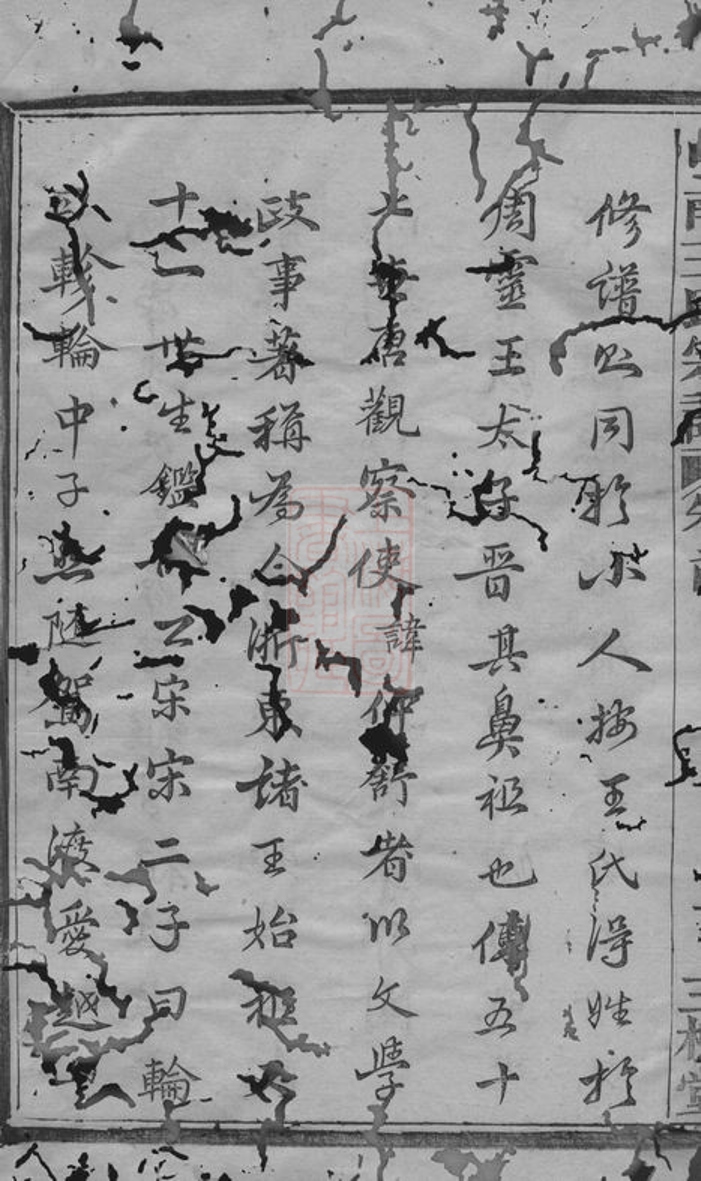 修譜與同於小人按王氏得姓於
周靈王太子晉其鼻祖也傳五十
七世唐觀察使諱仲舒者以文學
政事著稱為今浙東諸王始祖
十一世生鑑 公宋宋二子曰輪
曰 輪中子 隨駕南渡愛越
三槐堂